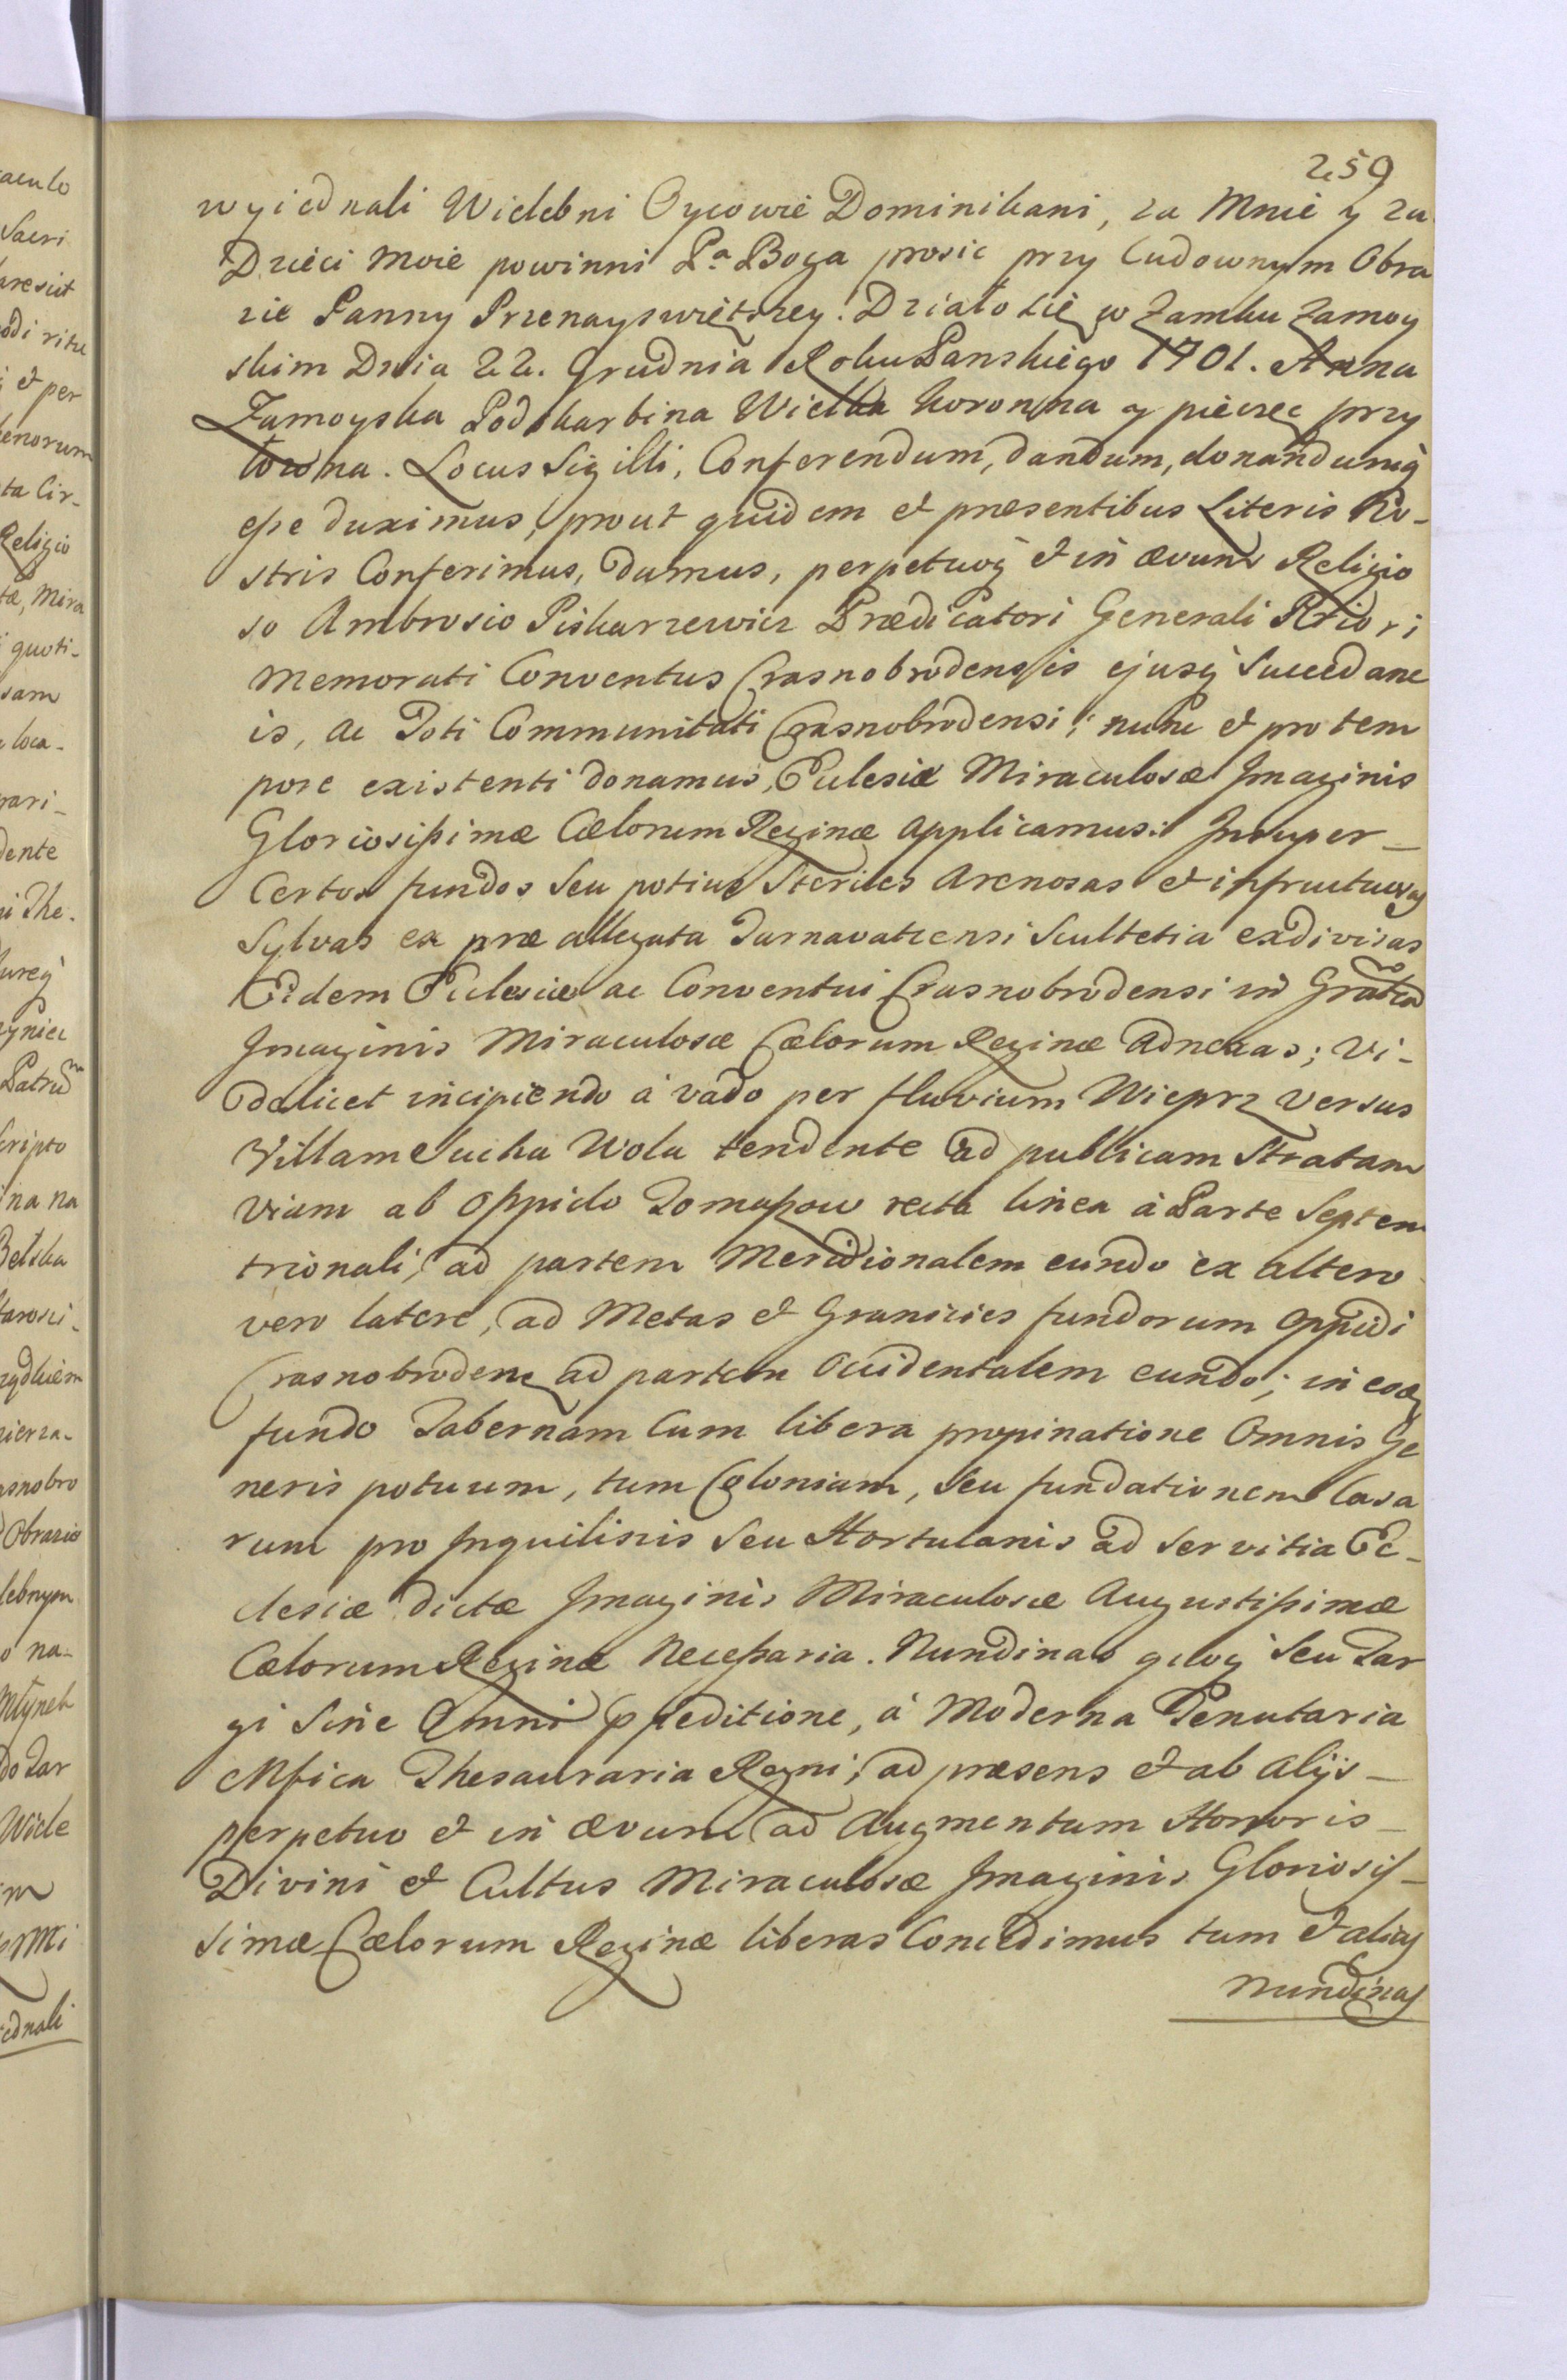 259
wyiednali Wielebni Oycowie Dominikani, za Mnie y za
Dzieci moie powinni Pa. Boga prosic przy Cudownym Obra
zie Panny Przenayswiętszey. Działo się w Zamku Zamoy
skim Dnia 22. Grudnia Roku Panskiego 1701. Anna
Zamoyska Podskarbina Wielka Koronna y pieczęc przy
Locus Sigilli, Conferendum, dandum, donandumq̀
eſse duximus, prout quidem et præsentibus Literis No-
stris Conferimus, Damus, perpetuoq̀ et in ævum Religio
so Ambrosio Piskarzewicz Prædicatori Generali Priori
Memorati Conventus Crasnobrodensis ejusq̀ Succedane
is, ac Toti Communitati Crasnobrodensi; nunc et pro tem
pore existenti donamus, Eclesiæ Miraculosæ Imaginis
Gloriosiſsimæ Cælorum Reginæ applicamus: Insuper_
Certos fundos Seu potius Steriles Arenosas et infructuosas
Sylvas ex præ allegata Tarnavatiensi Scultetia exdivisas
Eidem Eclesiæ ac Conventui Crasnobrodensi in Gratia
Imaginis Miraculosæ Cælorum Reginæ Adnexas; Vi-
delicet incipiendo à vado per fluvium Wieprz versus
Villam Sucha Wola tendente ad publicam Stratam
Viam ab Oppido Tomaſzow recta linea à Parte Septem
trionali, ad partem Meridionalem eundo ex altero
vero latere, ad Metas et Granicies fundorum Oppidi
Crasnobroden ad partem Occidentalem eundo; in eoq
fundo Tabernam Cum libera propinatione Omnis Ge
neris potuum, tum Coloniam, Seu fundationem Casa
rum pro Inquilinis Seu Hortulanis ad Servitia Ec-
clesiæ dictæ Imaginis Miraculosæ Augustiſsimæ
Cælorum Reginæ Neceſsaria. Nundinas Seu Tar
gi Sine Omni ꝑpeditione, à Moderna Tenutaria
Mfica Thesauraria Regni, ad præsens et ab Alijs_
perpetuo et in ævum ad Augmentum Honoris_
Divini et Cultus Miraculosæ Imaginis Gloriosiſ_
simæ Cælorum Reginæ liberas Concedimus tum et alias
Nundinas